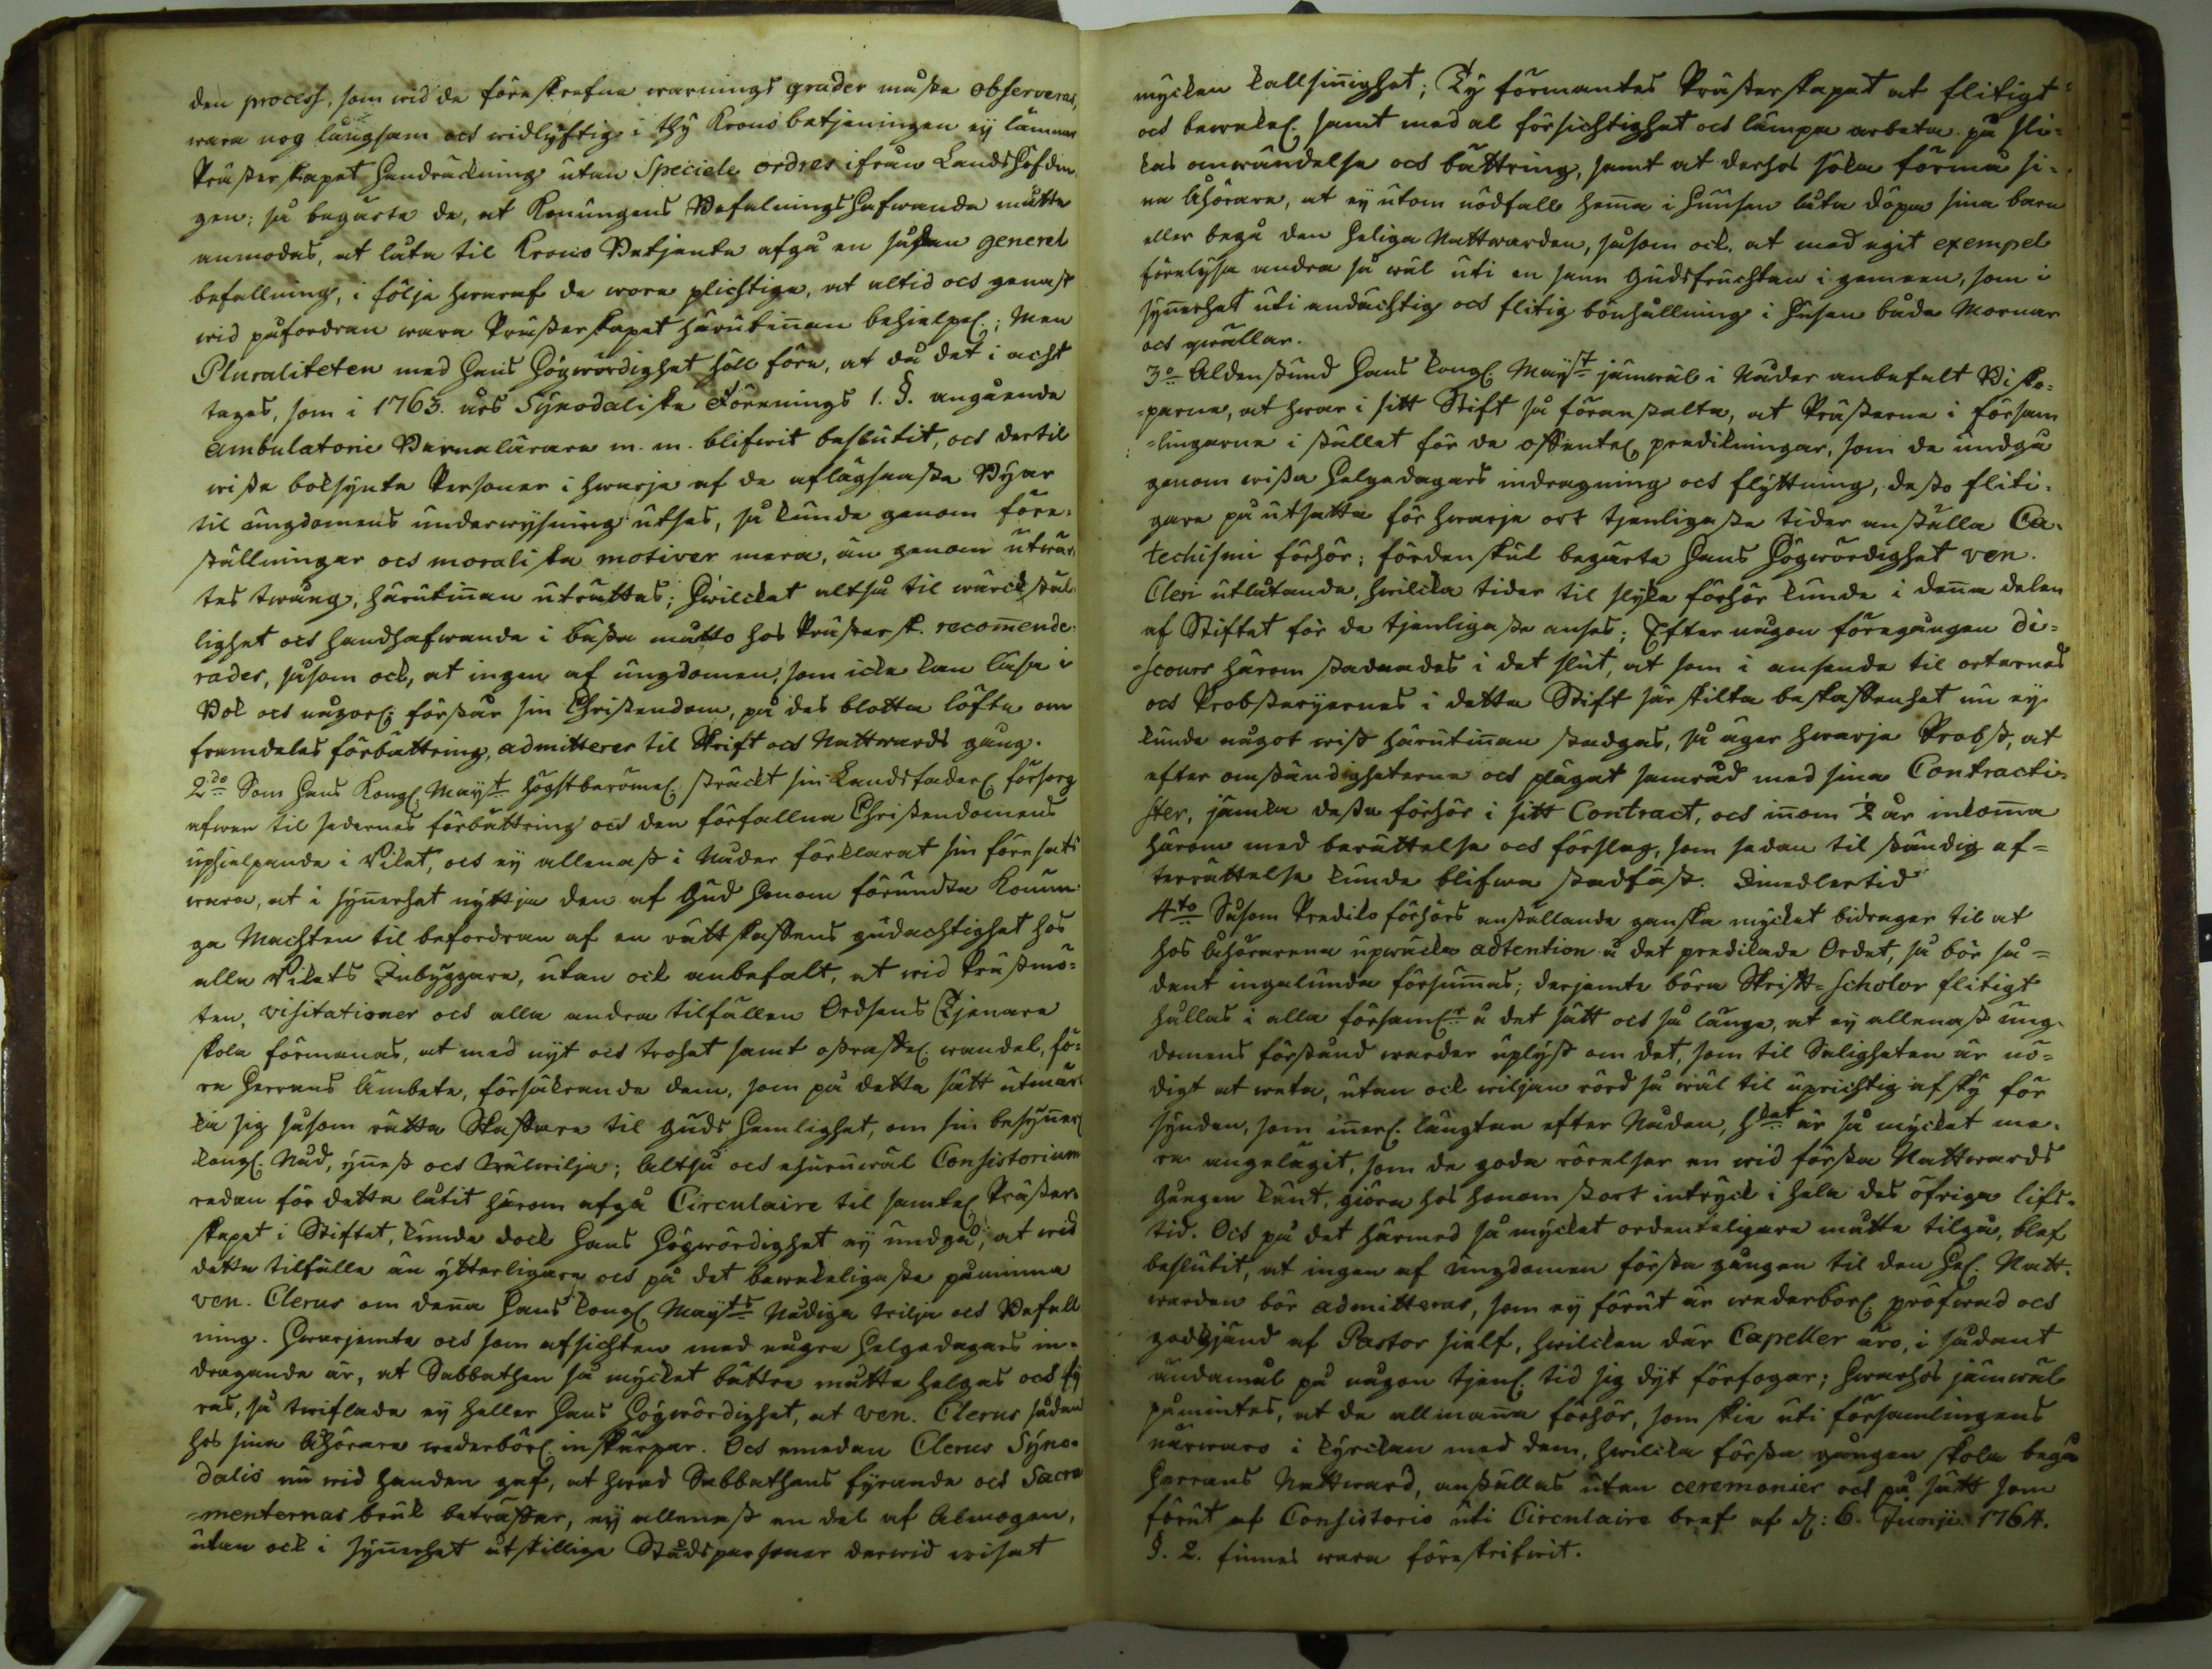 den process, som wid de föreskrefne warnings grader måste observeras,
wara nog långsam och widlyftig i thÿ Krono betjeningen eÿ lämnar
Prästerskapet handräckning utan Speciele ordres ifrån Landshöfdin
gen; så begärte de, at Konungens Befalningshafwande måtte
anmodas, at låta til Krono Betjente afgå en sådan generel
befallning, i följe hwaraf de wore plichtige, at altid och genast
wid påfordran wara Prästerskapet härutinnan behielpel.; Men
Pluraliteten med Hans Högwördighet höll före, at då det i acht
tages, som i 1763. års Sÿnodaliske Förenings 1. §. angående
ambulatorie Barnalärare m. m. blifwit beslutit, och dertil
wisse boksynte Personer i hwarje af de aflägsnaste Bÿar
til ungdomens underwysning utses, så kunde genom före-
ställningar och moraliska motiver mera, än genom utwär-
tes twång, härutinnan uträttas; Hwilcket altså til wärckstäl-
lighet och handhafwande i bästa måtto hos Prästersk. recom̄ende-
rades, såsom ock, at ingen af ungdomen, som icke kan läsa i
Bok och någorl. förstår sin Christendom, på des blotta löfte om
framdeles förbättring, admitteres til Skrift och Nattwards gång.
2do Som Hans Kongl. Mayst högstberömel. sträckt sin Landsfaderl. försorg
äfwen til sedernes förbättring och den förfallna Christendomens
uphielpande i Riket, och eÿ allenast i Nåder förklarat sin föresats
wara, at i sÿn̄erhet nÿttja den af Gud Honom förundta Konun-
ga Machten til befordran af en rättskaffens gudachtighet hos
alla Rikets Inbÿggare, utan ock anbefalt, at wid Prästmö-
ten, visitationer och alla andra tilfällen Ordsens Tjenare
skola förmanas, at med nÿt och trohet samt ostraffel. wandel, fö-
ra Herrans Ämbete, försäkrande dem, som på detta sätt utmär-
ka sig såsom rätta Skaffare til Guds Hemlighet, om sin besÿn̄erl.
kongl. Nåd, ÿn̄est och Wälwilja; Altså och ehuruwäl Consistorium
redan för detta låtit härom afgå Circulaire til samtel. Präster-
skapet i Stiftet, kunde dock Hans Högwördighet eÿ undgå, at wid
detta tilfälle än ÿtterligare och på det bewekeligaste påminna
ven. Clerus om denna Hans kongl. Mayts Nådiga wilja och Befall
ning. Hwarjemte och som afsichten med någre Helgedagars in-
dragande är, at Sabbathen så mÿcket bättre måtte helgas och fÿ
ras, så twiflade eÿ heller Hans Högwördighet, at ven. Clerus sådant
hos sine Åhörare wederbörl. inskärper. Och emedan Clerus Sÿno-
dalis nu wid handen gaf, at hwad Sabbathens fÿrande och Sacra
-menternas bruk beträffar, eÿ allenast en del af Almogen,
utan ock i sÿn̄erhet åtskillige Ståndspersoner derwid wisat
mÿcken kallsin̄ighet; Tÿ förmantes Prästerskapet at flitigt
och bewekel. samt med al försichtighet och lämpa arbeta på sli-
kas omwändelse och bättring, samt at derhos söka förmå si-
na åhörare, at eÿ utom nödfall hem̄a i husen låta döpa sina barn
eller begå den heliga Nattwarden, såsom ock, at med egit exempel
förelÿsa andra så wäl uti en sann Gudsfruchtan i gemen, som i
sÿn̄erhet uti andächtig och flitig bönhållning i husen både Mornar
och qwällar.
3o Aldenstund Hans kongl. Mayst jämwäl i Nåder anbefalt Bisko-
-parne, at hwar i sitt Stift så föranstalta, at Prästerne i försam
-lingarne i stället för de offentel. predikningar, som de undgå
genom wissa helgedagars indragning och flÿttning, desto fliti-
gare på utsatte för hwarje ort tjenligaste tider anställa Ca-
techismi förhör; fördenskul begärte Hans Högwördighet ven.
Cleri utlåtande, hwilcka tider til slÿka förhör kunde i den̄a delen
af Stiftet för de tjenligaste anses; Efter någon föregången di-
-scours härom stadnades i det slut, at som i anseende til orternes
och Probsterÿernes i detta Stift särskilta beskaffenhet nu eÿ
kunde något wist härutinnan stadgas, så äger hwarje Probst, at
efter omständigheterne och plägat samråd med sina Contracti-
ster, jämka dessa förhör i sitt Contract, och in̄om ½ år inkom̄a
härom med berättelse och förslag, som sedan til ständig ef-
terrättelse kunde blifwa stadfäst. Emedlertid
4to Såsom Predikoförhörs anställande ganska mÿcket bidrager til at
hos Åhörarena upwäcka adtention å det predikade Ordet, så bör så-
dant ingalunda försum̄as; derjemte böra Skrift-scholor flitigt
hållas i alla församl.r å det sätt och så länge, at eÿ allenast ung-
domens förstånd warder uplÿst om det, som til Saligheten är nö-
digt at weta, utan ock wiljan rörd så wäl til uprichtig afskÿ för
sÿnden, som in̄erl. längtan efter Nåden, hket är så mÿcket me-
ra angelägit, som de goda rörelser en wid första Nattwards
Gången känt, giöra hos honom stort intrÿck i hela des öfriga lifs-
tid. Och på det härmed så mÿcket ordenteligare måtte tilgå, blef
beslutit, at ingen af Ungdomen första gången til den Hel. Natt-
warden bör admitteras, som eÿ förut är wederbörl. pröfwad och
godkjänd af Pastor sielf, hwilcken där Capeller äro, i sådant
ändamål på någon tjenl. tid sig dÿt förfogar; Hwarhos jämwäl
påmintes, at de allmän̄a förhör, som skie uti församlingens
närwaro i kÿrckan med dem, hwilcka första gången skola begå
Herrans Nattward, anställas utan ceremonier och på sätt som
förut af Consistorio uti Circulaire bref af d. 6. Junii 1764.
§. 2. finnes wara föreskrifwit.